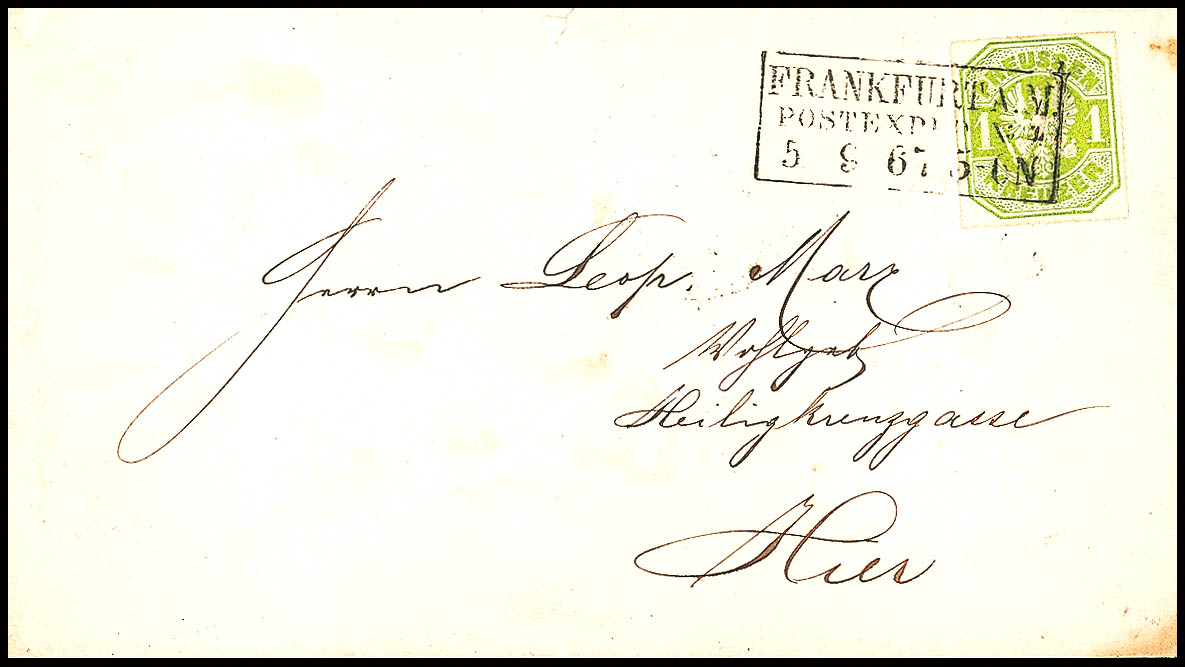 PREUSSEN
1 1
KREUZER
FRANKFURT A. M.
POSTEXP
5 9 67 5-6N
Herrn Leop. Marx
Wohlgeb
Heiligkreuzgasse
Hier